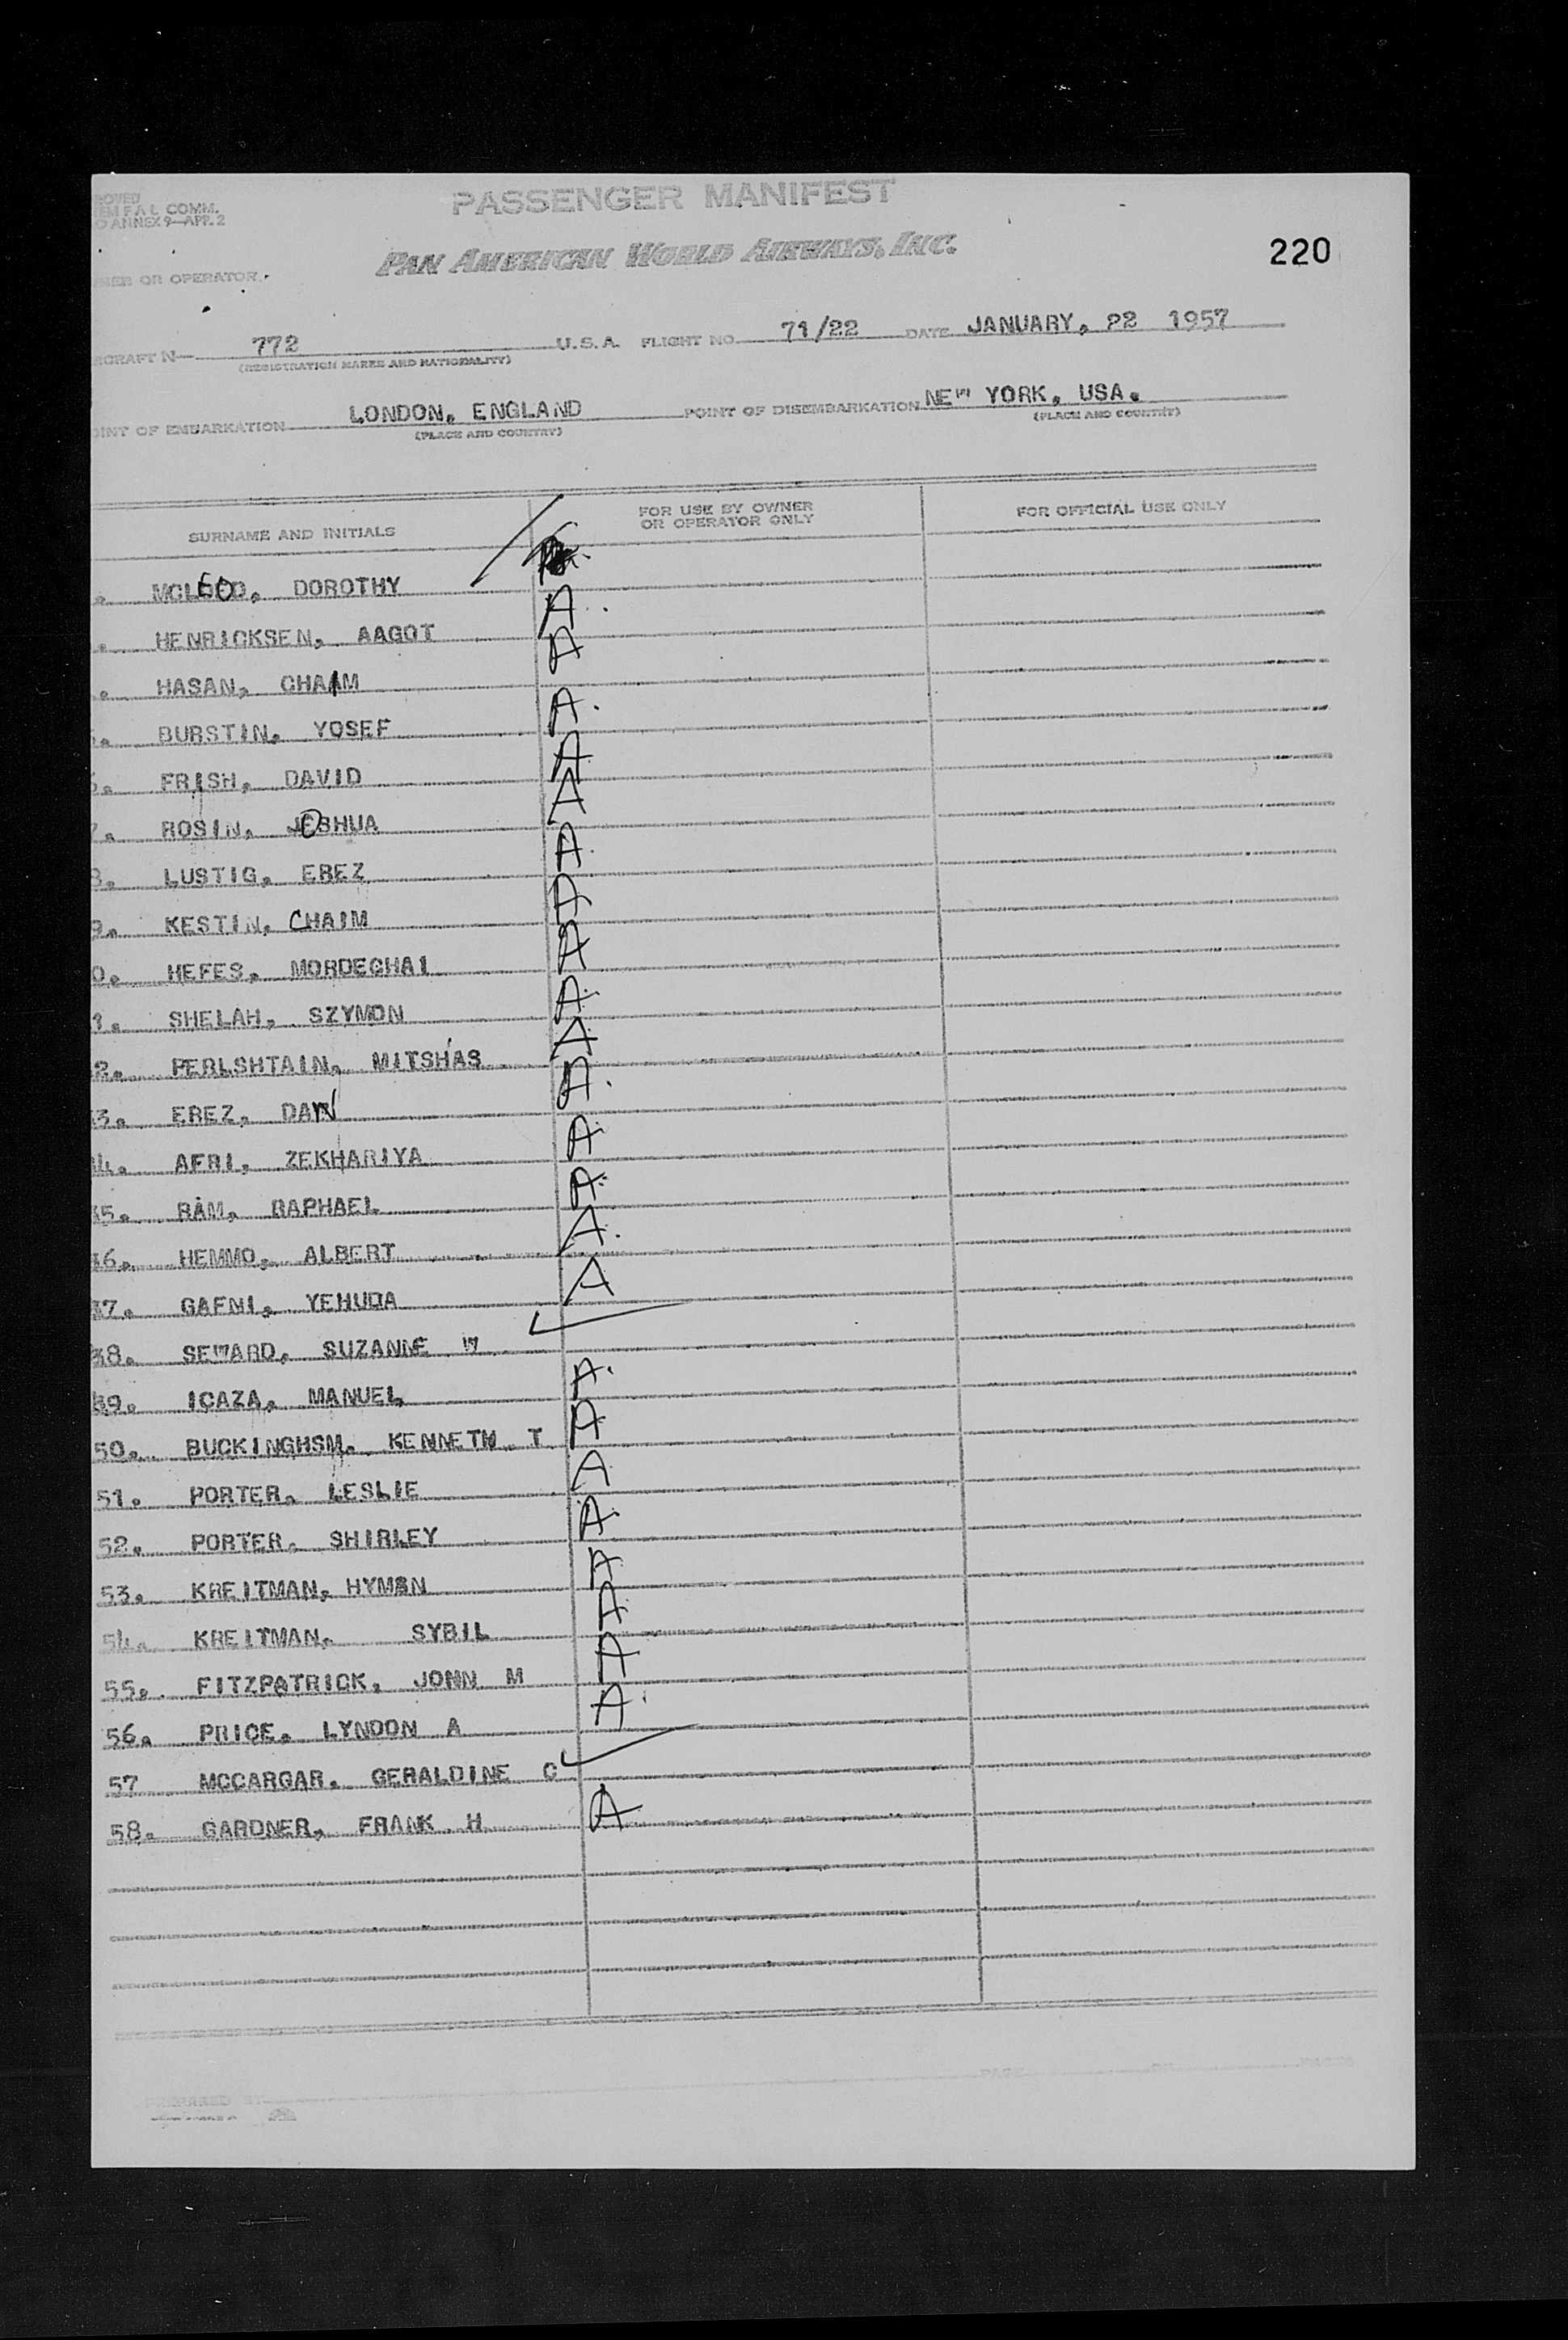 ROVED
EM F A L COMM.
O ANNEX 9—APP. 2
PASSENGER MANIFEST
PAN AMERICAN WORLD AIRWAYS, INC.
220
NER OR OPERATOR.
RCRAFT N— 772 U.S.A. FLIGHT NO. 71/22 DATE JANUARY, 22 1957
(REGISTRATION MARKS AND NATIONALITY)
OINT OF EMBARKATION LONDON, ENGLAND POINT OF DISEMBARKATION NEW YORK, USA.
(PLACE AND COUNTRY) (PLACE AND COUNTRY)
SURNAME AND INITIALS FOR USE BY OWNER OR OPERATOR ONLY FOR OFFICIAL USE ONLY
. MCLEOD, DOROTHY
. HENRICKSEN, AAGOT A
. HASAN, CHAIM A
. BURSTIN, YOSEF A.
. FRISH, DAVID A
7. ROSIN, JOSHUA A
8. LUSTIG, EREZ A.
9. KESTIN, CHAIM A
0. HEFES, MORDECHAI A
1. SHELAH, SZYMON A.
2. PERLSHTAIN, MITSHAS A
3. EREZ, DAN A.
4. AFRI, ZEKHARIYA A
5. RAM, RAPHAEL A.
46. HEMMO, ALBERT A.
47. GAFNI, YEHUDA A
48. SEWARD, SUZANNE W ✓
49. ICAZA, MANUEL A.
50. BUCKINGHSM, KENNETH T A
51. PORTER, LESLIE A
52. PORTER, SHIRLEY A.
53. KREITMAN, HYMAN A
54. KREITMAN, SYBIL A
55. FITZPATRICK, JOHN M A
56. PRICE, LYNDON A A.
57 MCCARGAR, GERALDINE C ✓
58. GARDNER, FRANK H A